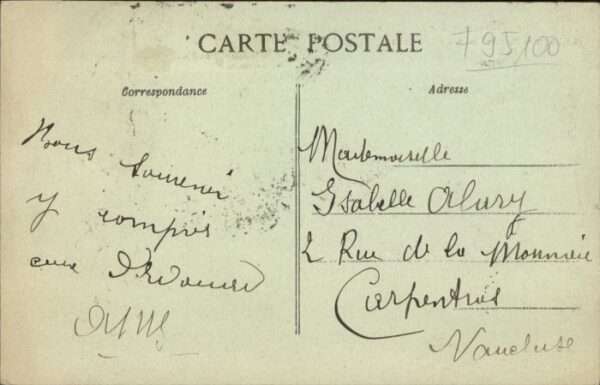 CARTE POSTALE
795/100
Correspondance
Bons souvenir
y compris
ceux d'Edouard
Adresse
Mademoiselle
Isabelle Alary
2 Rue de la Monnaie
Carpentras
Vaucluse